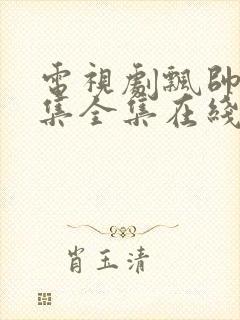 電視劇飄帥
集全集在綫
肖玉清